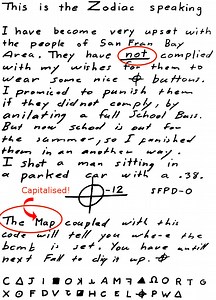 This is the Zodiac speaking
I have become very upset with
the people of San Fran Bay
Area. They have not complied
with my wishes for them to
wear some nice ⌖ buttons.
I promiced to punish them
if they did not comply, by
anilating a full School Buss.
But now school is out for
the summer, so I punished
them in an another way.
I shot a man sitting in
a parked car with a .38.
Capitalised!
⌖-12 SFPD-0
The Map coupled with this
code will tell you where the
bomb is set. You have untill
next Fall to dig it up. ⌖